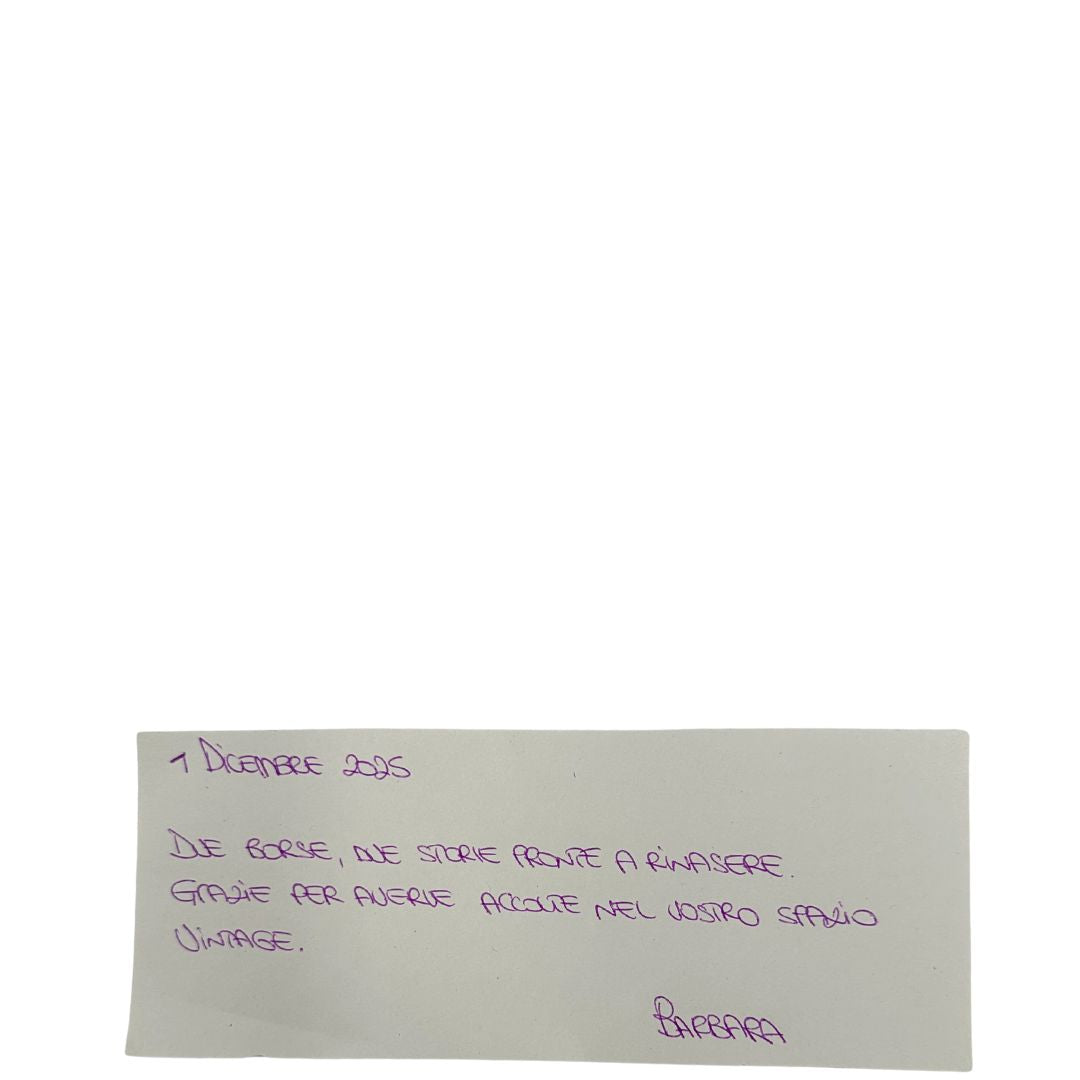 1 DICEMBRE 2025
DUE BORSE, DUE STORIE PRONTE A RINASERE.
GRAZIE PER AVERVE ACCOLTE NEL VOSTRO SPAZIO
VINTAGE.
BARBARA